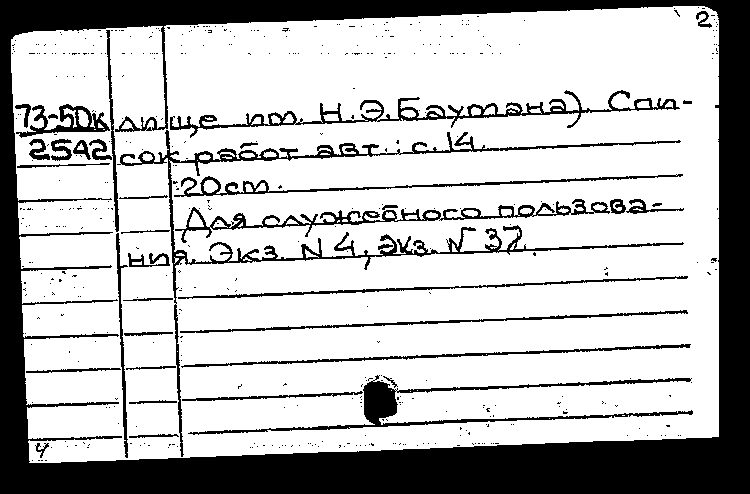 2
73-50к лище им. Н.Э.Баумана). Спи-
2542 сок работ авт.: с. 14.
20см.
Для служебного пользова-
ния. Экз. N 4, экз. N 37.
4